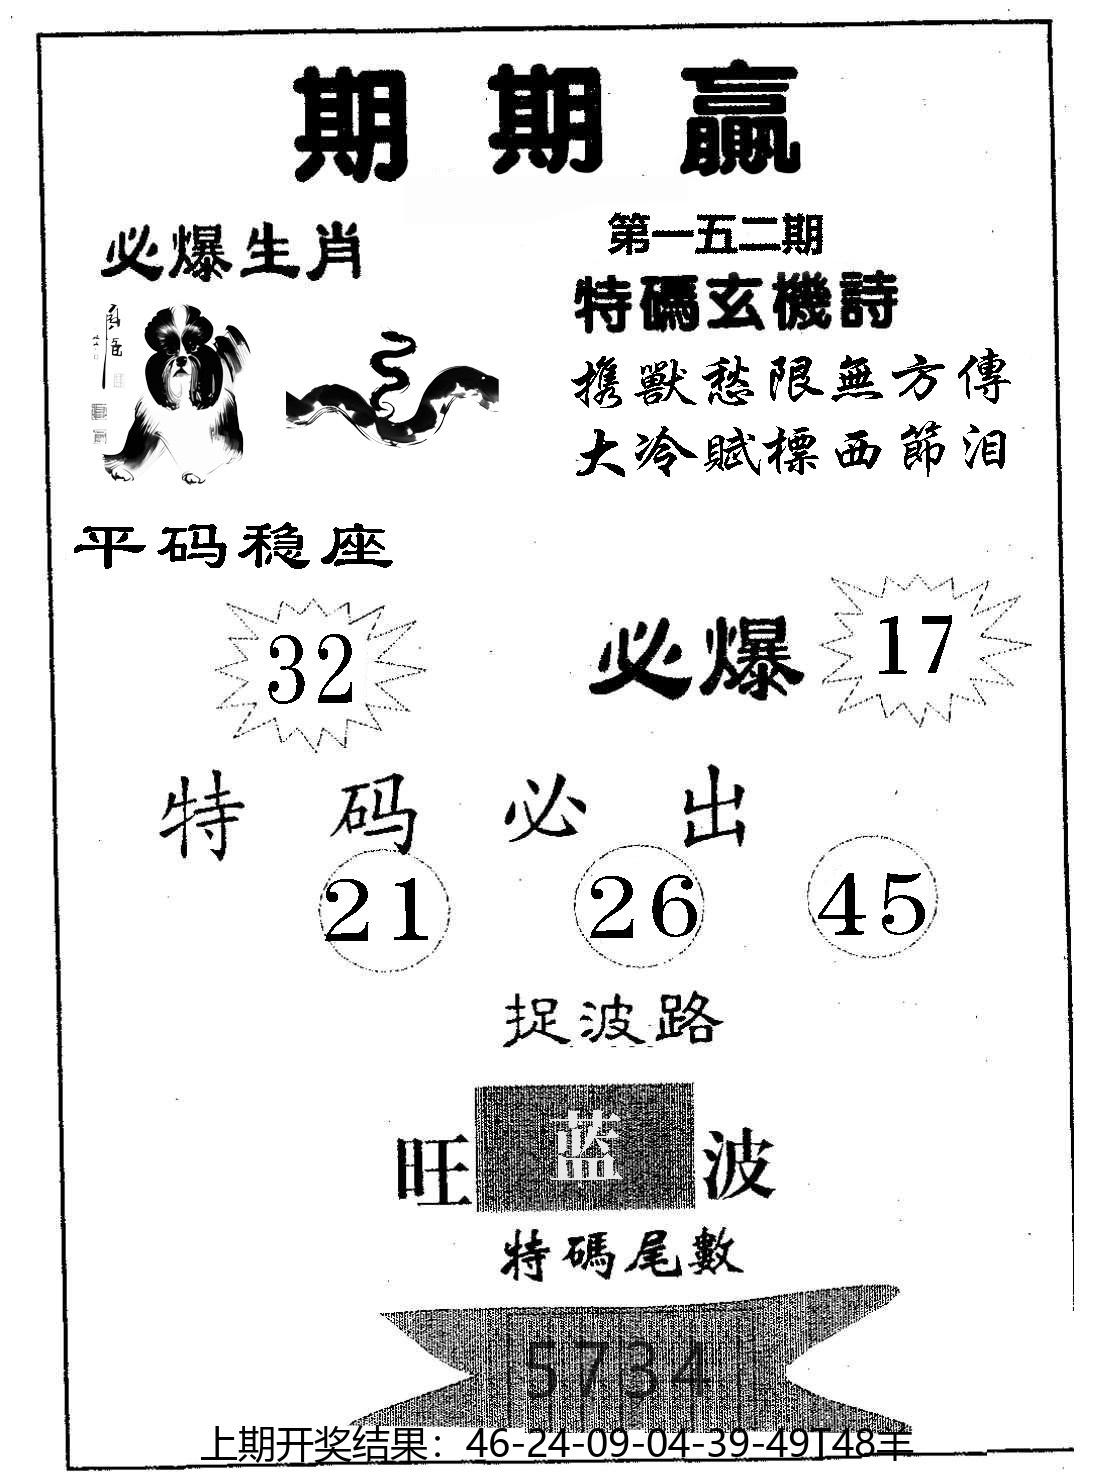 期期贏
必爆生肖
第一五二期
特碼玄機詩
携獸愁限無方傳
大冷賦標西節泪
平码稳座
32
必爆
17
特码必出
21 26 45
捉波路
旺蓝波
特碼尾數
5734
上期开奖结果：46-24-09-04-39-49T48羊